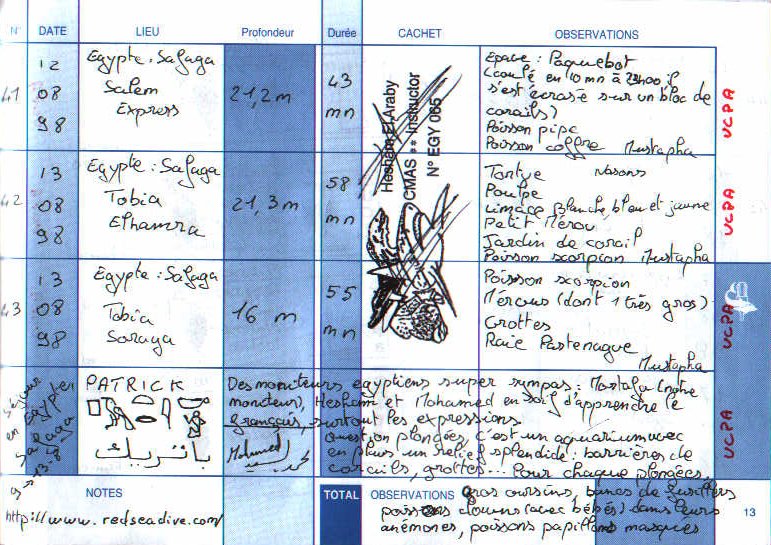 N° DATE LIEU Profondeur Durée CACHET OBSERVATIONS
41
12
08
98
Egypte : Safaga
Salem
Express
21,2 m
43
mn
Hesham El Araby
CMAS ** Instructor
N° EGY 065
Epave : Paquebot
(coulé en 10 mn à 23h00 il
s'est écrasé sur un bloc de
corails)
Poisson pipe
Poisson coffre Mustapha
UCPA
42
13
08
98
Egypte : Safaga
Tobia
Elhamra
21,3 m
58
mn
Tortue Nasons
Poulpe
Limace Blanche, bleu et jaune
Petit Mérou
Jardin de corail
Poisson scorpion Mustapha
UCPA
43
13
08
98
Egypte : Safaga
Tobia
Soraya
16 m
55
mn
Poisson scorpion
Mérous (dont 1 très gros)
Grottes
Raie Pastenague
Mustapha
UCPA
Séjour
en Egypte
Safaga
PATRICK
باتريك
Des moniteurs egyptiens super sympas : Mostafa (notre
moniteur), Hesham et Mohamed en soif d'apprendre le
français, surtout les expressions
Mohamed
Question plongées c'est un aquarium avec
en plus un relief splendide : barrières de
corails, grottes... Pour chaque plongées,
UCPA
NOTES
http://www.redseadive.com/
TOTAL
OBSERVATIONS
Gros oursins, bancs de fusiliers
poissons clowns (avec bébés) dans leurs
anémones, poissons papillons masqués
13